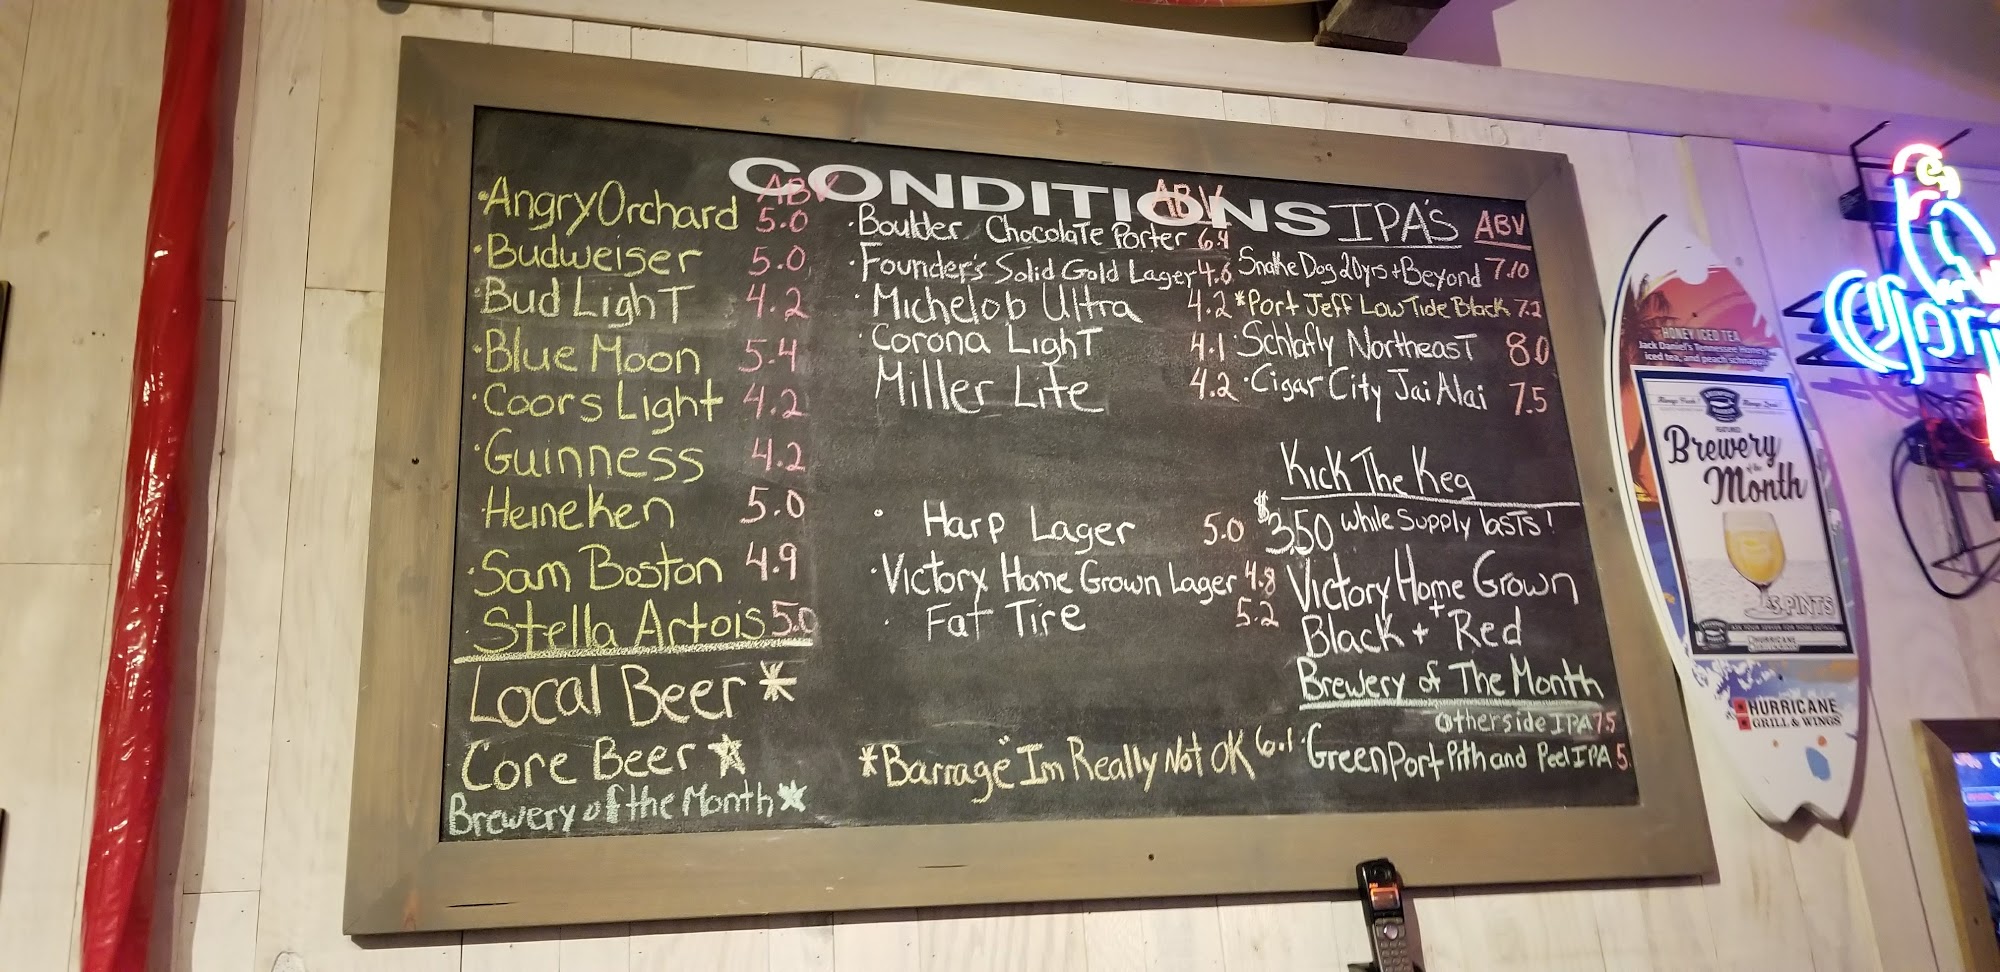 CONDITIONS
ABV
·Angry Orchard 5.0
·Budweiser 5.0
·Bud Light 4.2
·Blue Moon 5.4
·Coors Light 4.2
·Guinness 4.2
·Heineken 5.0
·Sam Boston 4.9
·Stella Artois 5.0
Local Beer *
Core Beer ☆
Brewery of the Month ☆
ABV
·Boulder Chocolate Porter 6.4
·Founder's Solid Gold Lager 4.6
·Michelob Ultra 4.2
·Corona Light 4.1
Miller Lite 4.2
· Harp Lager 5.0
·Victory Home Grown Lager 4.8
· Fat Tire 5.2
*Barrage "Im Really Not OK 6.1
IPA'S ABV
Snake Dog 20yrs + Beyond 7.10
*Port Jeff Low Tide Black 7.2
·Schlafly Northeast 8.0
·Cigar City Jai Alai 7.5
Kick The Keg
$3.50 while supply lasts!
Victory Home Grown
+
Black + Red
Brewery of The Month
Otherside IPA 7.5
·GreenPort Pith and Peel IPA 5.
HONEY ICED TEA
Jack Daniel's Tennessee Honey,
iced tea, and peach schnapps
FEATURED
Brewery
of the
Month
PINTS
HURRICANE
HURRICANE
GRILL & WINGS
Corona